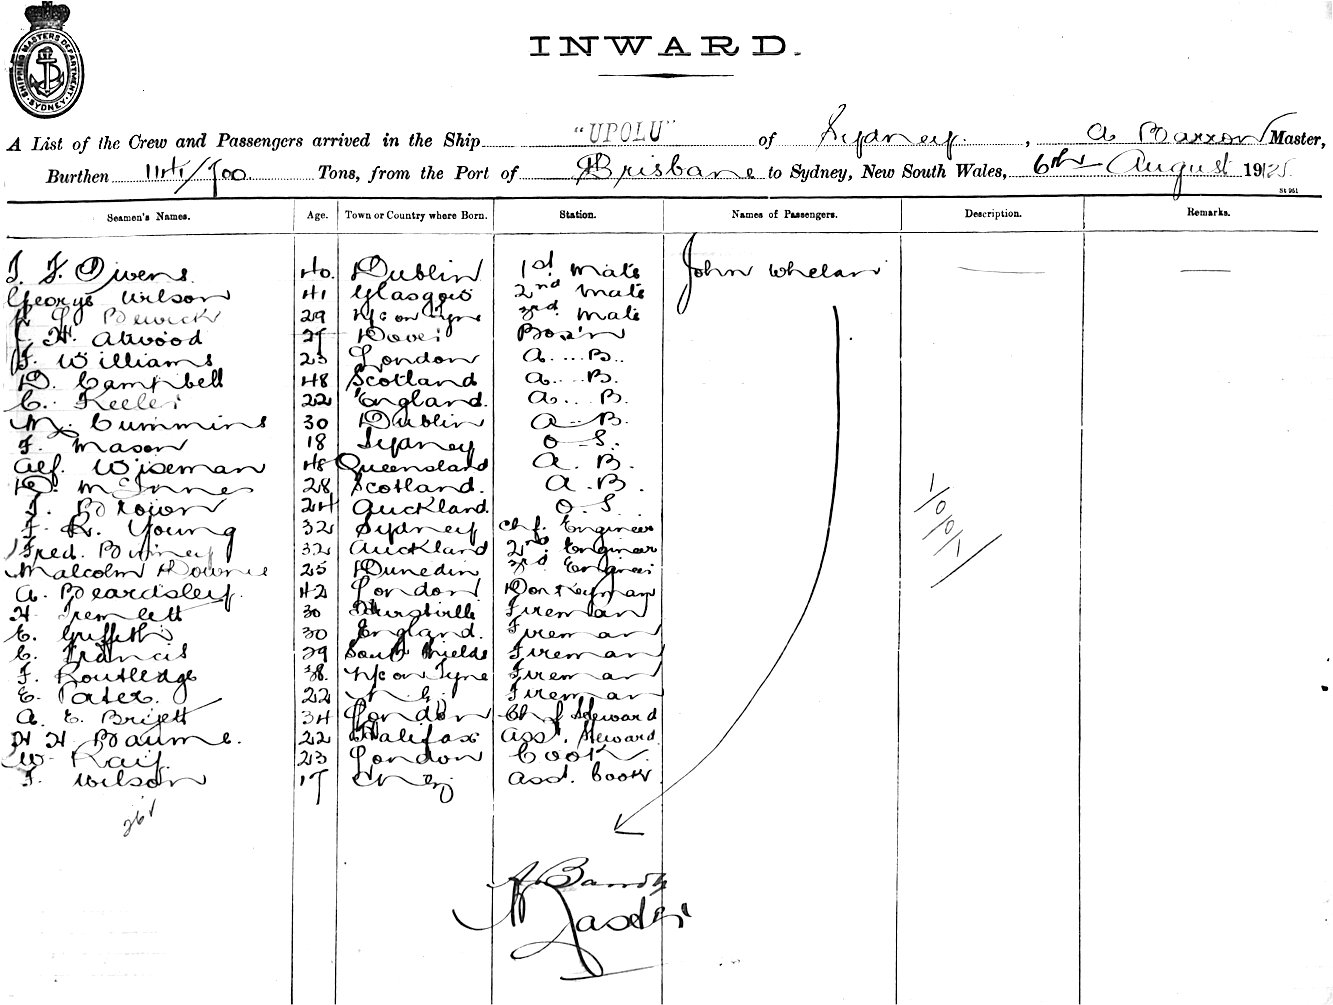 SHIPPING MASTERS DEPARTMENT SYDNEY
INWARD.
A List of the Crew and Passengers arrived in the Ship "UPOLU" of Sydney, A Barron Master,
Burthen Tons, from the Port of Brisbane to Sydney, New South Wales, 6th August 19
St 961
Seamen's Names. Age. Town or Country where Born. Station. Names of Passengers. Description. Remarks.
Owens 40 Dublin 1st Mate John Whelan
George Wilson 41 Glasgow 2nd Mate
29 N/c on Tyne 3rd Mate
H. Atwood Dover Bos'n
Williams 23 London A.....B..
D. Campbell 48 Scotland A.....B.
C. Keeler 22 England. A....B.
M. Cummins 30 Dublin A...B.
F. Mason 18 Sydney O S.
Alf. Wiseman 48 Queensland A. B.
D. McInnes 28 Scotland. A.B.
Brown 24 Auckland. O.S.
F. R. Young 32 Sydney Chf. Engineer
Fred. Binney 32 Auckland 2nd Engineer
Malcolm Downie 25 Dunedin 3rd Engineer
A. Beardsley. 42 London Donkeyman
H Tremlett 30 Hurstville Fireman
E. Griffith 30 England. Fireman
C. Francis 29 South Shields Fireman
F. Routledge 38. N/c on Tyne Fireman
E. Pater. 22 Fireman
A. E. 34 London Chf Steward
H H Baume. 22 Halifax Asst. Steward
W. 23 London Cook
F. Wilson 17 Asst. Cook
26
A Barron
Master